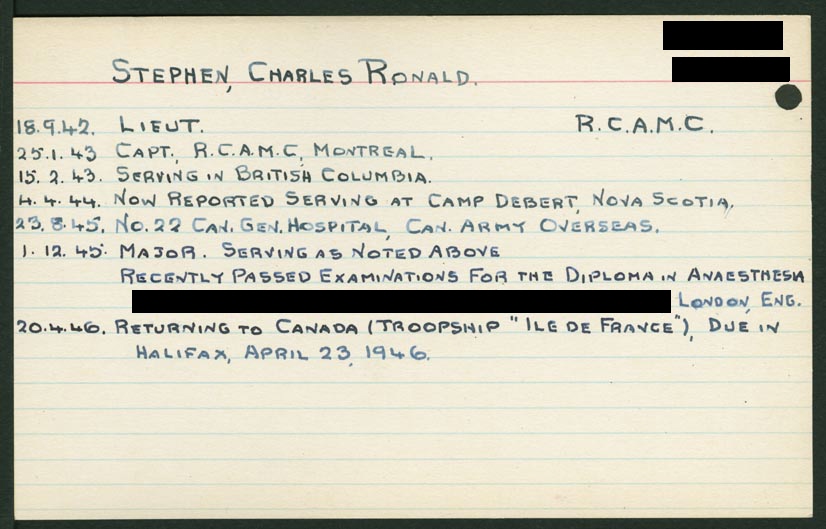 STEPHEN, CHARLES RONALD.
18.9.42. LIEUT. R.C.A.M.C.
25.1.43 CAPT., R.C.A.M.C, MONTREAL.
15.2.43. SERVING IN BRITISH COLUMBIA.
4.4.44. NOW REPORTED SERVING AT CAMP DEBERT, NOVA SCOTIA.
23.8.45. NO.22 CAN. GEN. HOSPITAL, CAN. ARMY OVERSEAS.
1.12.45. MAJOR. SERVING AS NOTED ABOVE
RECENTLY PASSED EXAMINATIONS FOR THE DIPLOMA IN ANAESTHESIA
LONDON, ENG.
20.4.46. RETURNING TO CANADA (TROOPSHIP "ILE DE FRANCE"), DUE IN
HALIFAX, APRIL 23, 1946.